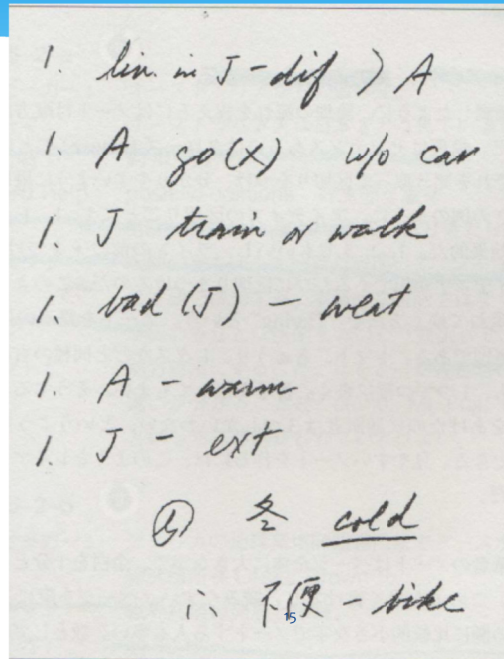 1. liv. in J - dif > A
1. A go (x) w/o car
1. J train or walk
1. bad (J) - weat
1. A - warm
1. J - ext
冬 cold
∴ 不便 - bike
15